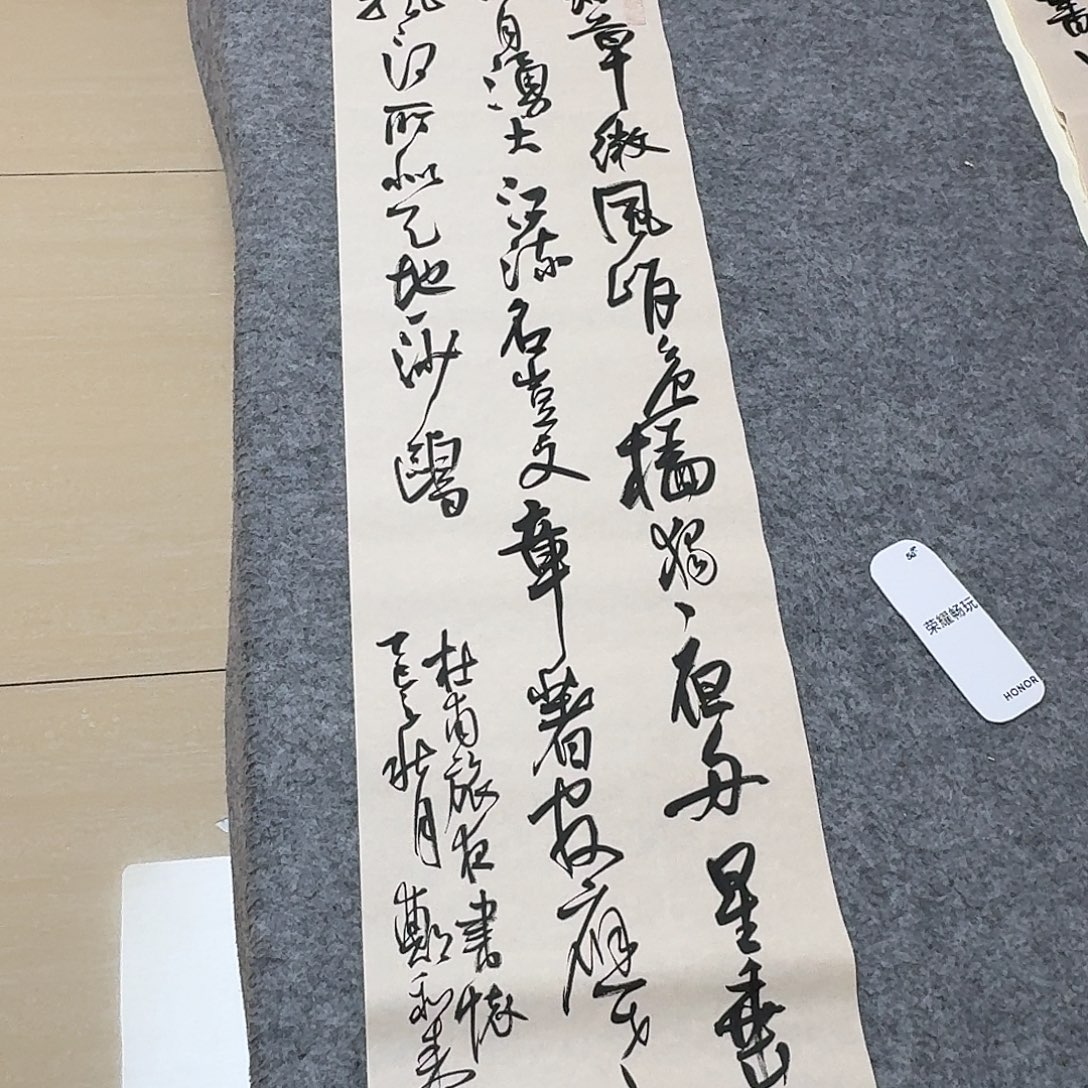 草微風岸危檣獨夜舟星垂
月湧大江流名豈文章著官應
何所似天地一沙鷗
杜甫旅夜書懷
乙巳年秋月鄭和
荣耀畅玩
HONOR